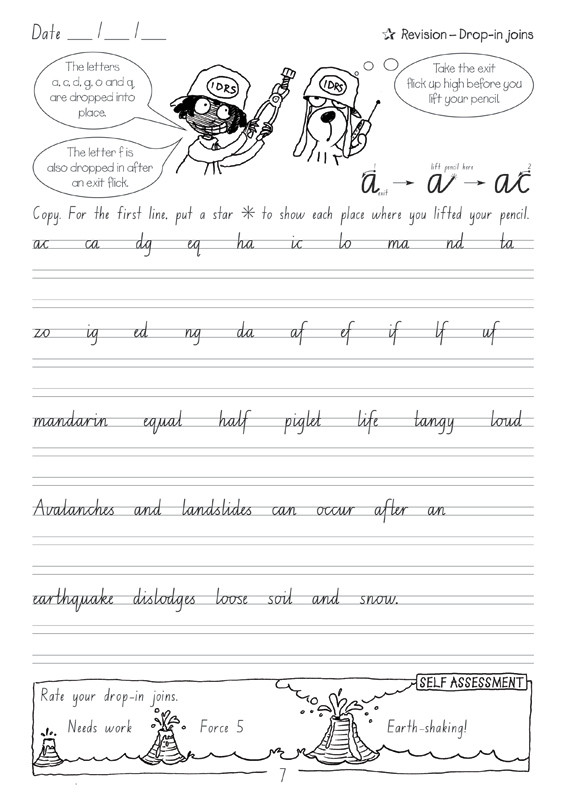 Date ___ / ___ / ___
☆ Revision – Drop-in joins
The letters
a, c, d, g, o and q,
are dropped into
place.
The letter f is
also dropped in after
an exit flick.
IDRS
IDRS
Take the exit
flick up high before you
lift your pencil.
1 lift pencil here 2
a → a* → ac
exit
Copy. For the first line, put a star * to show each place where you lifted your pencil.
ac ca dg eq ha ic lo ma nd ta
zo ig ed ng da af ef if lf uf
mandarin equal half piglet life tangy loud
Avalanches and landslides can occur after an
earthquake dislodges loose soil and snow.
SELF ASSESSMENT
Rate your drop-in joins.
Needs work Force 5 Earth-shaking!
7